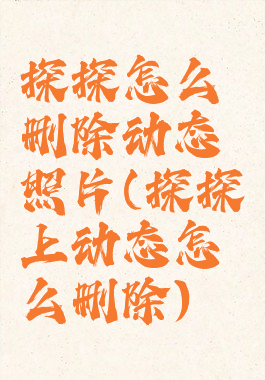 探探怎么
删除动态
照片(探探
上动态怎
么删除)